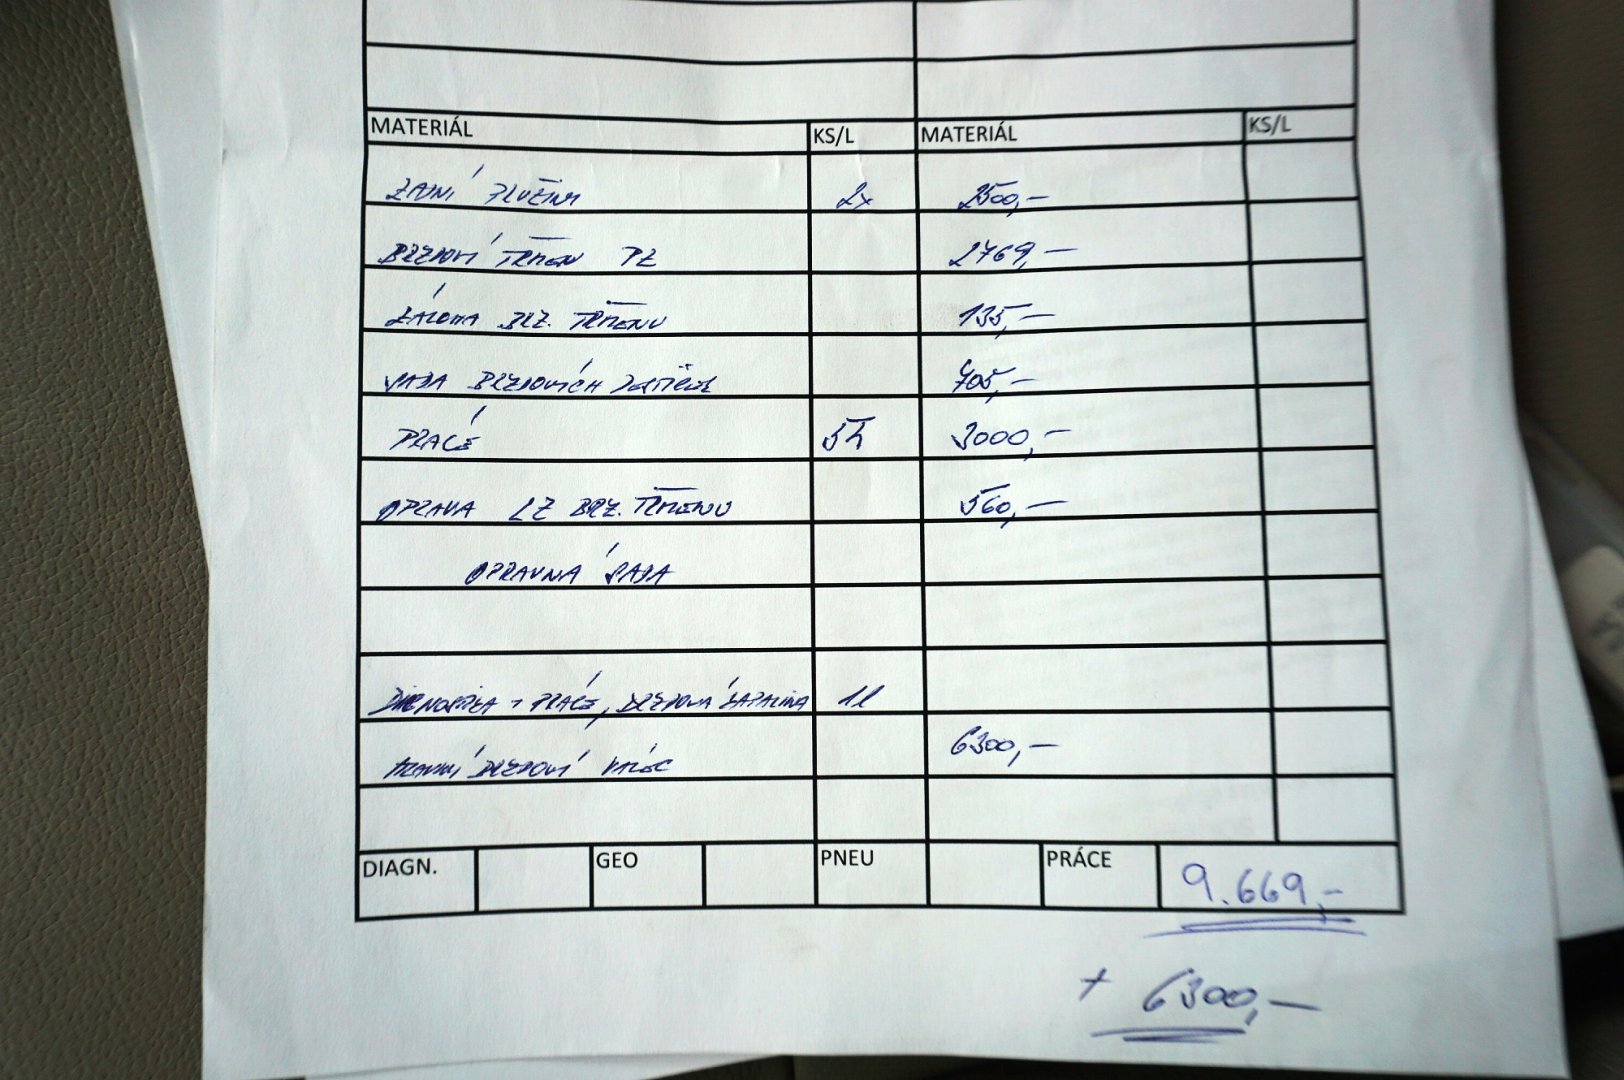 MATERIÁL KS/L MATERIÁL KS/L
ZADNÍ PRUŽINY 2x 2500,-
BRZDOVÍ TŘMEN PZ 2769,-
ZÁLOHA BRZ. TŘMENU 135,-
SADA BRZDOVÍCH DESTIČEK 705,-
PRÁCE 5h 3000,-
OPRAVA LZ BRZ. TŘMENU 560,-
OPRAVNÁ SADA
DIAGNOSTIKA + PRÁCE, BRZDOVÁ KAPALINA 1l
HLAVNÍ BRZDOVÍ VÁLEC 6300,-
DIAGN. GEO PNEU PRÁCE 9.669,-
+ 6300,-